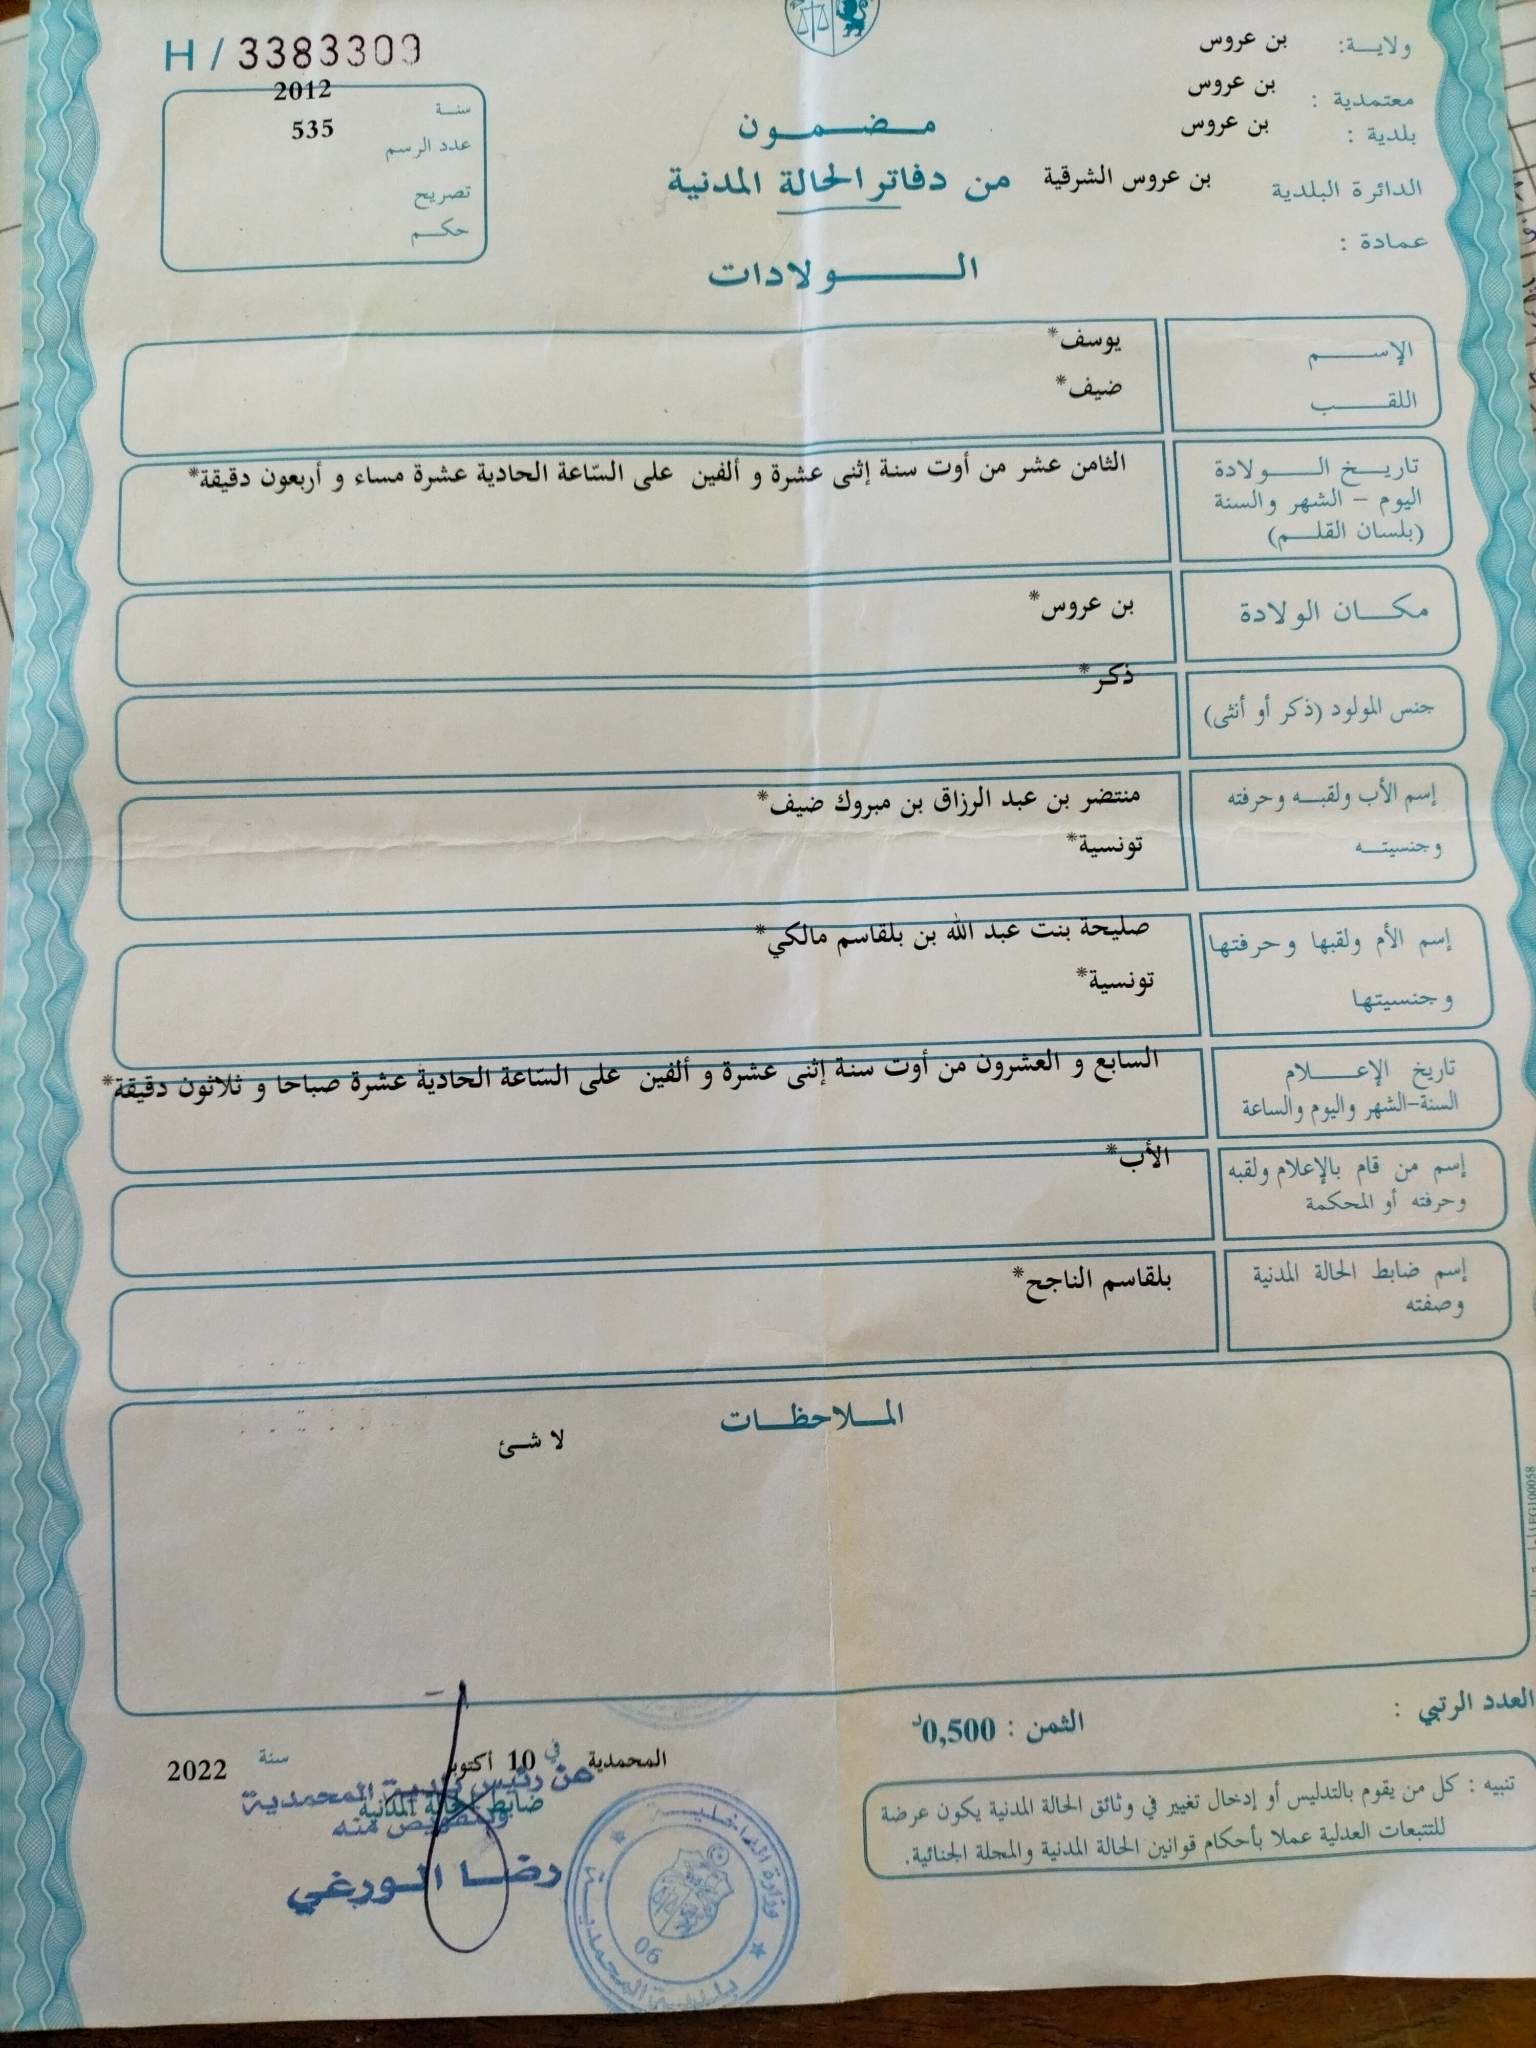 H / 3383309
سنة 2012
عدد الرسم 535
تصريح
حكم
ولاية: بن عروس
معتمدية : بن عروس
بلدية : بن عروس
الدائرة البلدية بن عروس الشرقية
عمادة :
مضمون
من دفاتر الحالة المدنية
الولادات
الإسم يوسف*
اللقب ضيف*
تاريخ الولادة
اليوم - الشهر والسنة
(بلسان القلم)
الثامن عشر من أوت سنة إثنى عشرة و ألفين على السّاعة الحادية عشرة مساء و أربعون دقيقة*
مكان الولادة بن عروس*
جنس المولود (ذكر أو أنثى) ذكر*
إسم الأب ولقبه وحرفته منتضر بن عبد الرزاق بن مبروك ضيف*
وجنسيته تونسية*
إسم الأم ولقبها وحرفتها صليحة بنت عبد الله بن بلقاسم مالكي*
وجنسيتها تونسية*
تاريخ الإعلام
السنة-الشهر واليوم والساعة
السابع و العشرون من أوت سنة إثنى عشرة و ألفين على السّاعة الحادية عشرة صباحا و ثلاثون دقيقة*
إسم من قام بالإعلام ولقبه
وحرفته أو المحكمة
الأب*
إسم ضابط الحالة المدنية
وصفته
بلقاسم الناجح*
الملاحظات
لا شئ
العدد الرتبي :
الثمن : 0,500د
تنبيه : كل من يقوم بالتدليس أو إدخال تغيير في وثائق الحالة المدنية يكون عرضة
للتتبعات العدلية عملا بأحكام قوانين الحالة المدنية والمجلة الجنائية.
المحمدية في 10 أكتوبر سنة 2022
ضابط الحالة المدنية
من رئيس بلدية المحمدية
وبتفويض منه
رضا الورغي
وزارة الداخلية
بلدية المحمدية
06